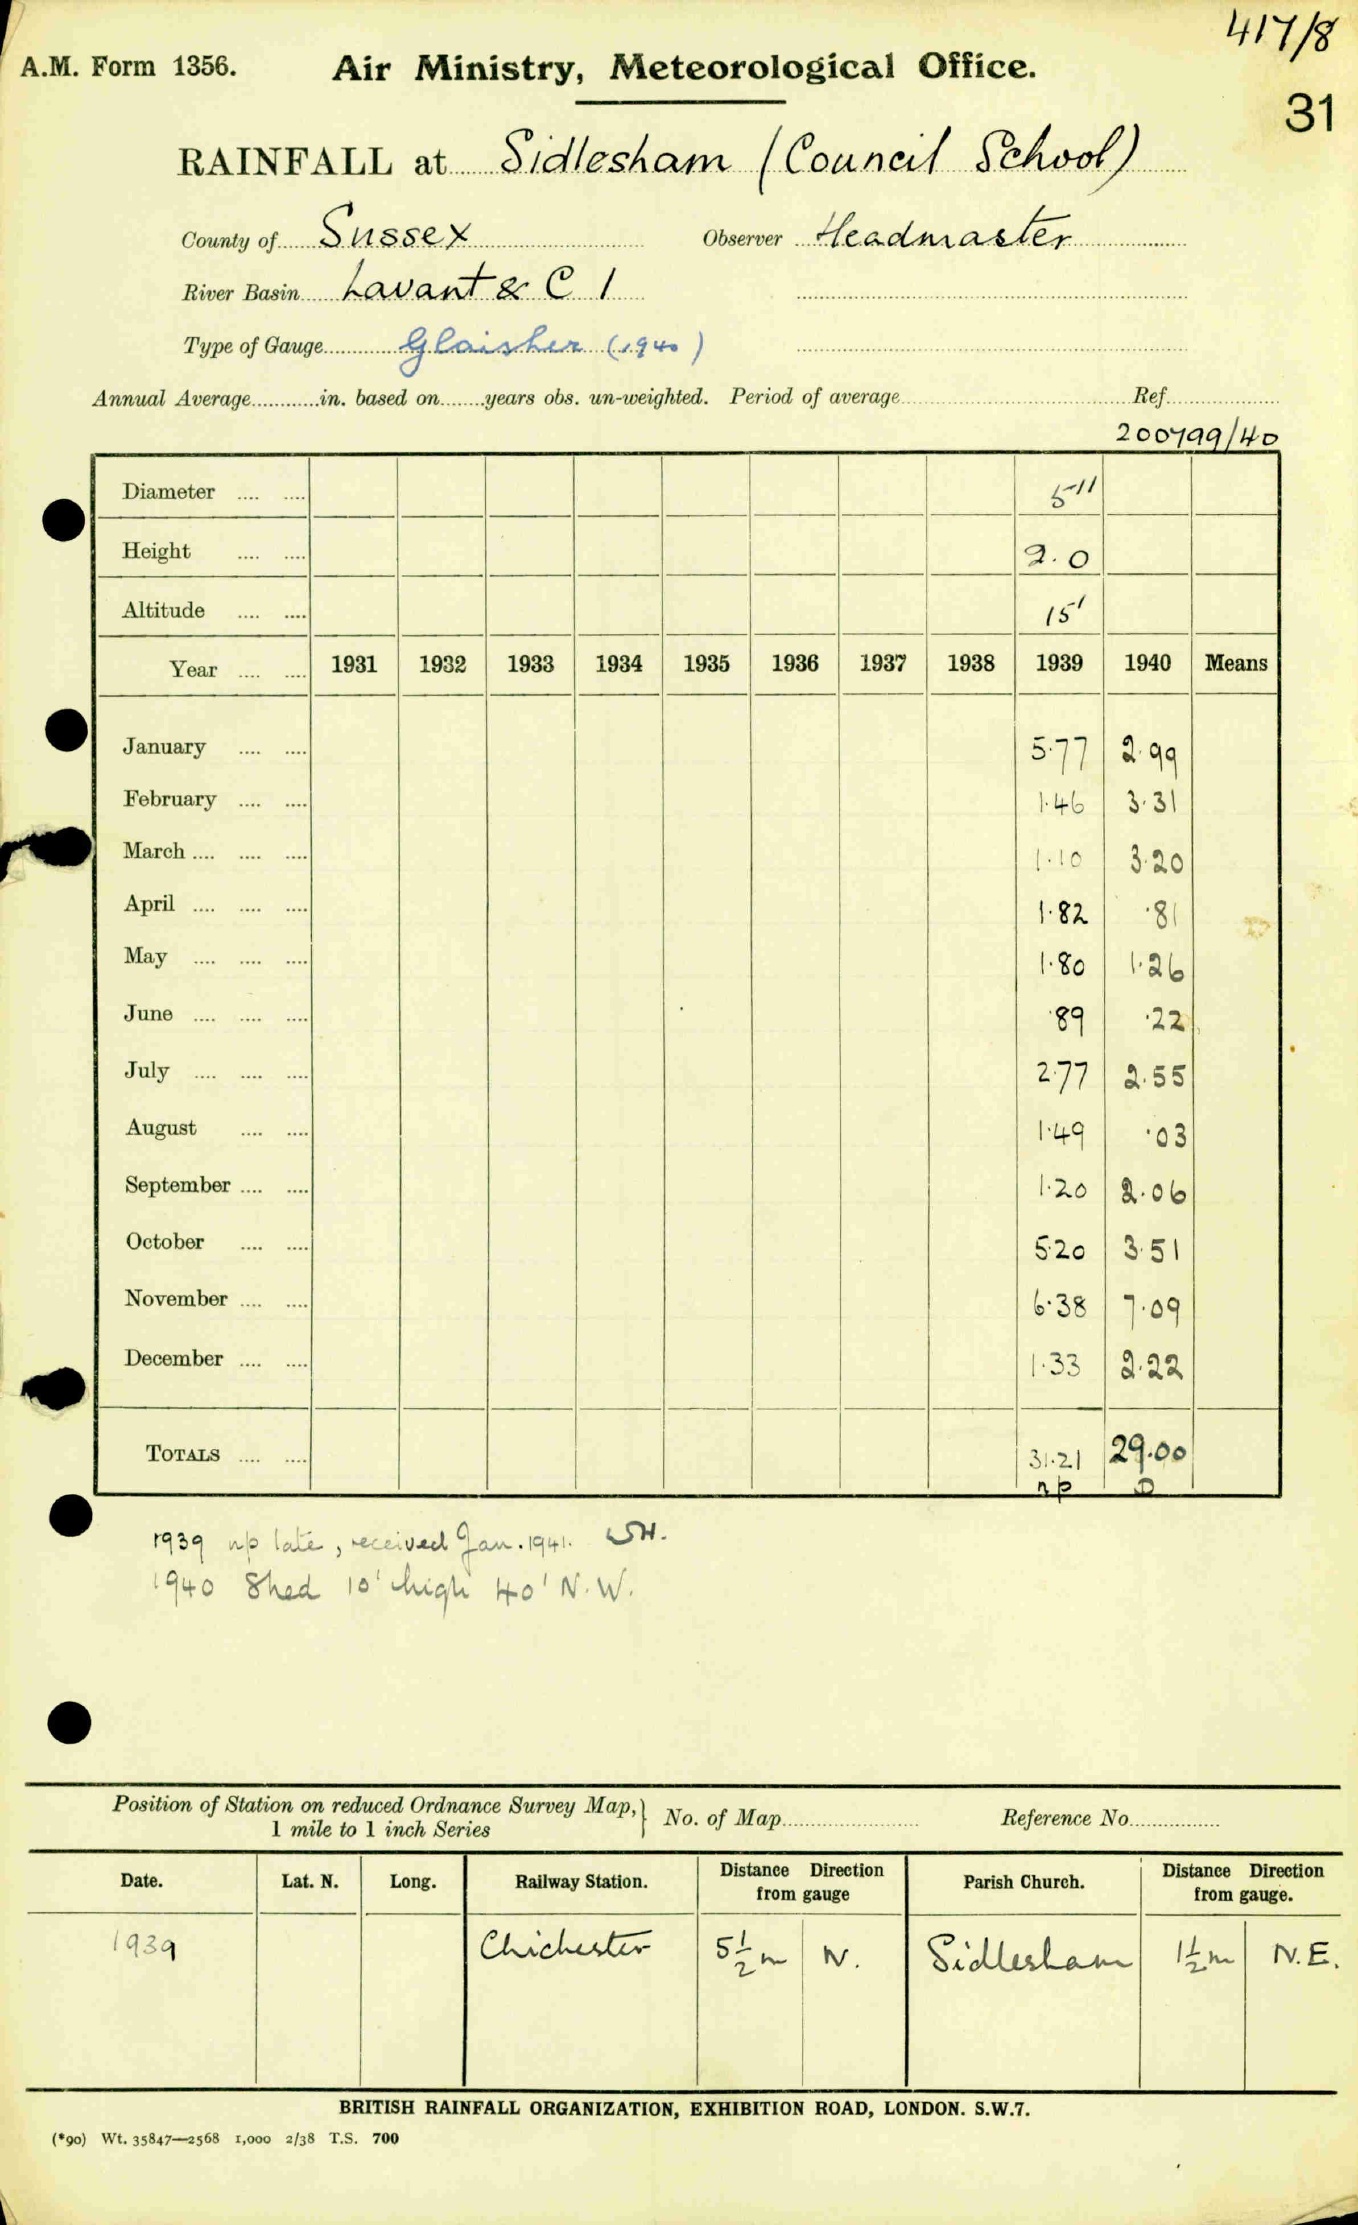 417/8
A.M. Form 1356. Air Ministry, Meteorological Office.
31
RAINFALL at Sidlesham (Council School)
County of Sussex Observer Headmaster
River Basin Lavant & C 1
Type of Gauge Glaisher (1940)
Annual Average............in. based on........years obs. un-weighted. Period of average........ Ref........
200799/40
Diameter .... .... 5"
Height .... .... 2.0
Altitude .... .... 15'
Year .... .... 1931 1932 1933 1934 1935 1936 1937 1938 1939 1940 Means
January .... .... 5.77 2.99
February .... .... 1.46 3.31
March .... .... .... 1.10 3.20
April .... .... .... 1.82 .81
May .... .... .... 1.80 1.26
June .... .... .... .89 .22
July .... .... .... 2.77 2.55
August .... .... 1.49 .03
September .... .... 1.20 2.06
October .... .... 5.20 3.51
November .... .... 6.38 7.09
December .... .... 1.33 2.22
TOTALS .... .... 31.21 29.00
np
1939 np late, received Jan. 1941.
1940 Shed 10' high 40' N.W.
Position of Station on reduced Ordnance Survey Map,} No. of Map........ Reference No........
1 mile to 1 inch Series
Date. Lat. N. Long. Railway Station. Distance Direction from gauge Parish Church. Distance Direction from gauge.
1939 Chichester 5½ m N. Sidlesham 1½ m N.E.
BRITISH RAINFALL ORGANIZATION, EXHIBITION ROAD, LONDON. S.W.7.
(*90) Wt. 35847—2568 1,000 2/38 T.S. 700